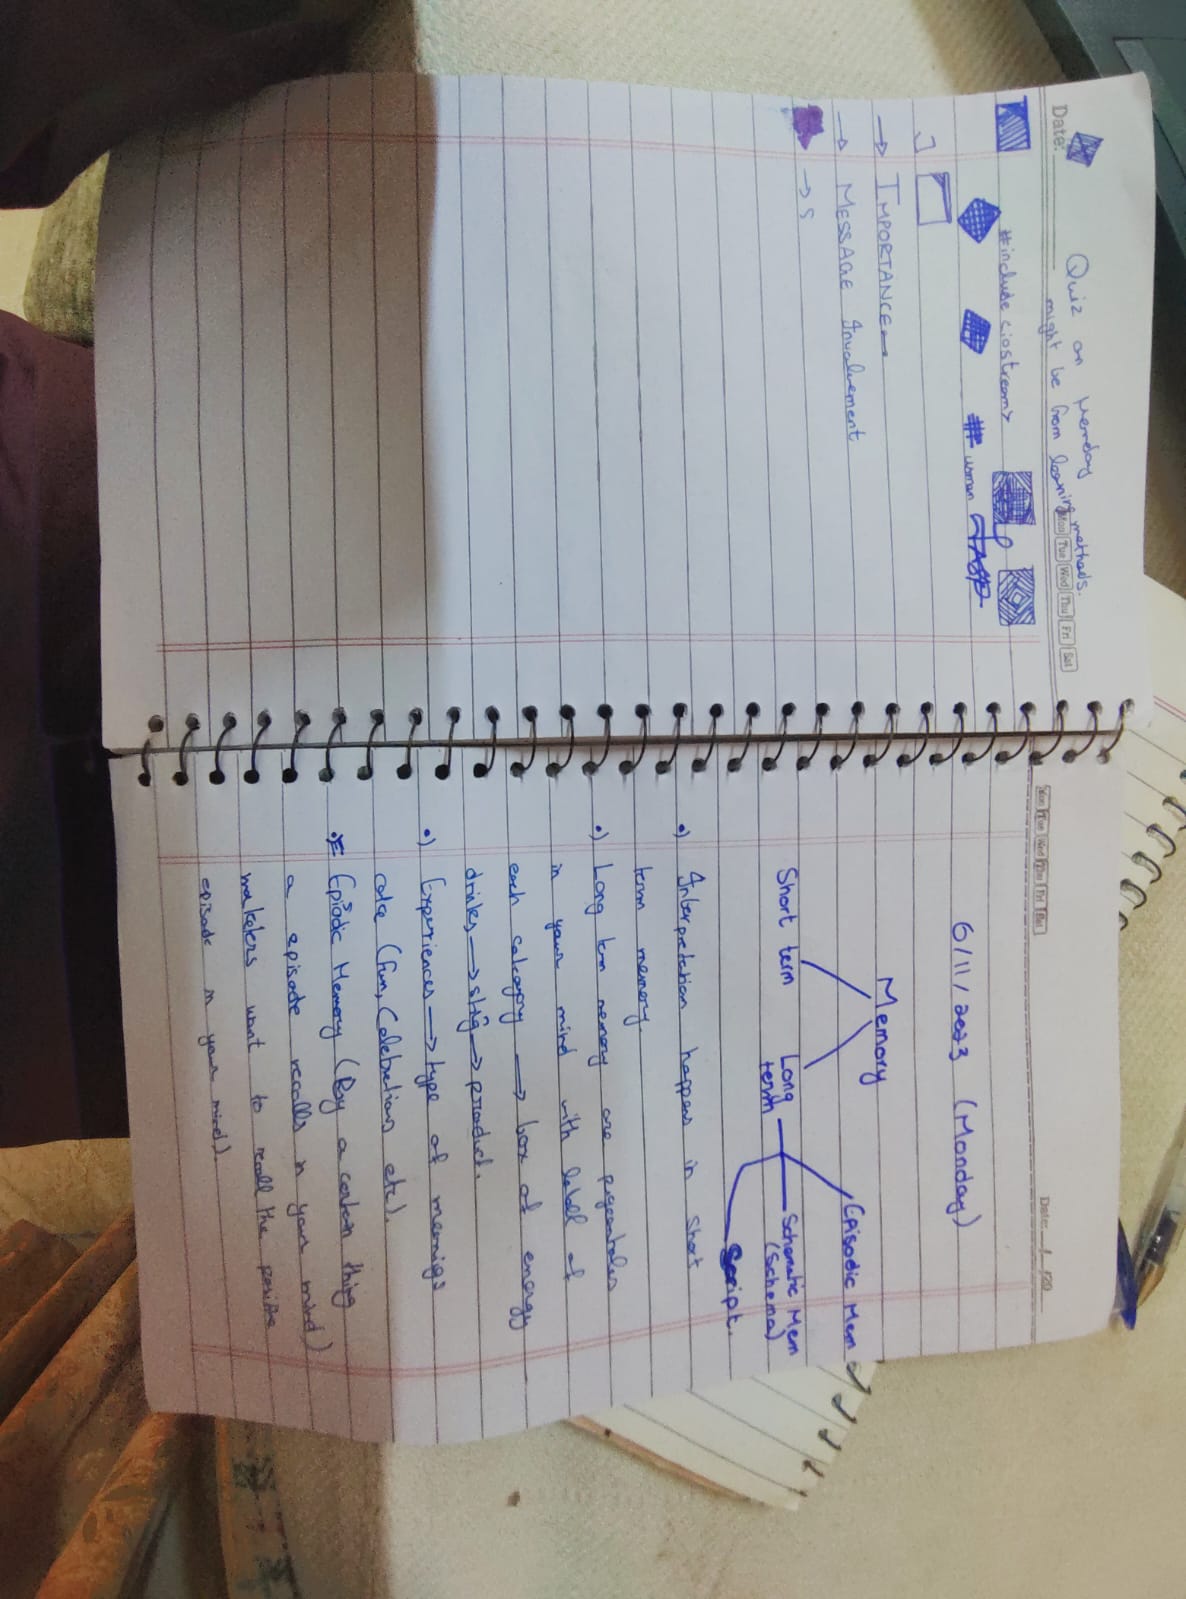 Quiz on Monday
might be from learning methods.
Date:
Mon Tue Wed Thu Fri Sat
#include <iostream>
# usman
→ IMPORTANCE
→ MESSAGE Involvement
→ S
Mon Tue Wed Thu Fri Sat
Date: / /20
6/11/2023 (Monday)
Memory
Episodic Mem
Short term
Long
term
Schematic Mem
(Schema)
Script.
•) Interpretation happens in short
term memory.
•) Long term memory are pigeonholes
in your mind with label of
each category → box of energy
drinks → sting → product.
•) Experiences → type of
coke (fun, Celebrations etc).
Episodic Memory (By a certain thing
a episode recalls in your mind)
maketers want to recall the positive
episode in your mind).